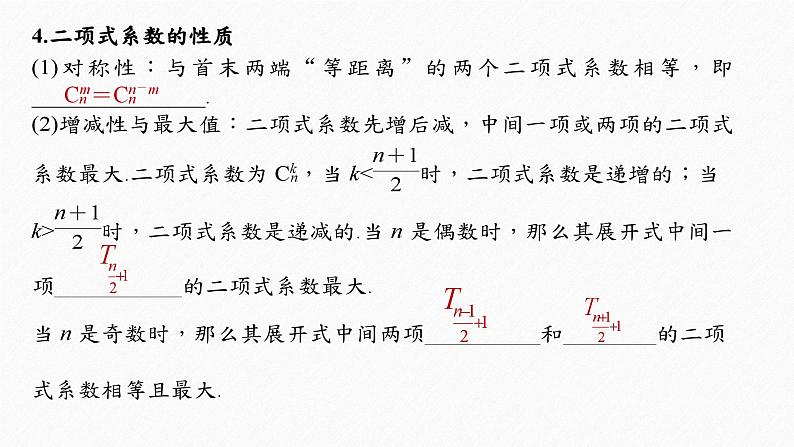 4.二项式系数的性质
(1)对称性：与首末两端“等距离”的两个二项式系数相等，即
C_n^m＝C_n^{n－m}.
(2)增减性与最大值：二项式系数先增后减，中间一项或两项的二项式
系数最大.二项式系数为 C_n^k，当 k<\frac{n＋1}{2}时，二项式系数是递增的；当
k>\frac{n＋1}{2}时，二项式系数是递减的.当 n 是偶数时，那么其展开式中间一
项T_{\frac{n}{2}+1}的二项式系数最大.
当 n 是奇数时，那么其展开式中间两项T_{\frac{n-1}{2}+1}和T_{\frac{n+1}{2}+1}的二项
式系数相等且最大.